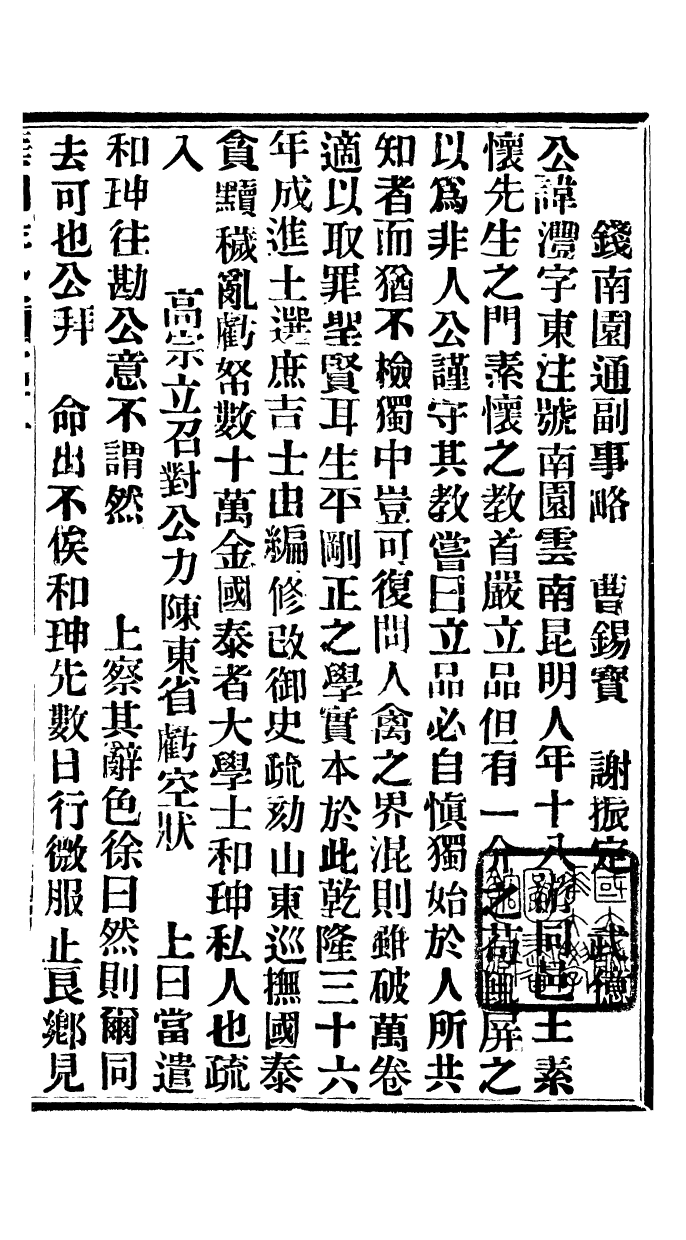 錢南園通副事略　曹錫寶　謝振定　武億
公諱灃字東注號南園雲南昆明人年十八游同邑王素
懷先生之門素懷之教首嚴立品但有一介之苟輒屏之
以爲非人公謹守其教嘗曰立品必自慎獨始於人所共
知者而猶不檢獨中豈可復問人禽之界混則雖破萬卷
適以取罪聖賢耳生平剛正之學實本於此乾隆三十六
年成進士選庶吉士由編修改御史疏劾山東巡撫國泰
貪黷穢亂虧帑數十萬金國泰者大學士和珅私人也疏
入　高宗立召對公力陳東省虧空狀　上曰當遣
和珅往勘公意不謂然　上察其辭色徐曰然則爾同
去可也公拜　命出不俟和珅先數日行微服止良鄉見